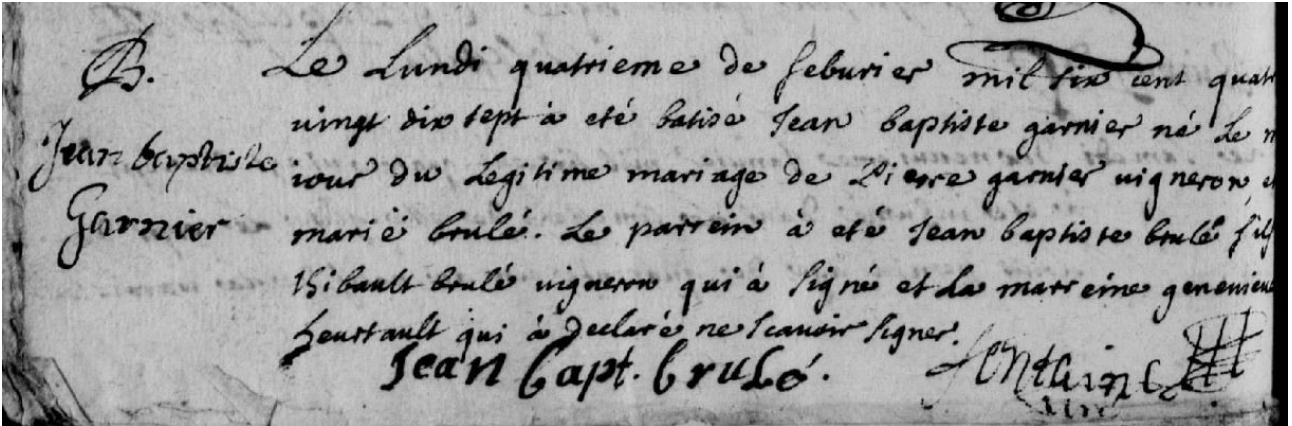 B.
Jean baptiste
Garnier
Le Lundi quatrieme de feburier mil six cent quatre
vingt dix sept à eté batisé Jean baptiste garnier né le
iour du Legitime mariage de Pierre garnier vigneron et
marië brulé. Le parrein à eté Jean baptiste brulé fils
thibault brulé vigneron qui à signé et La marreine genevieve
heurtault qui à declaré ne scavoir signer.
Jean bapt. brulé.
fontaine